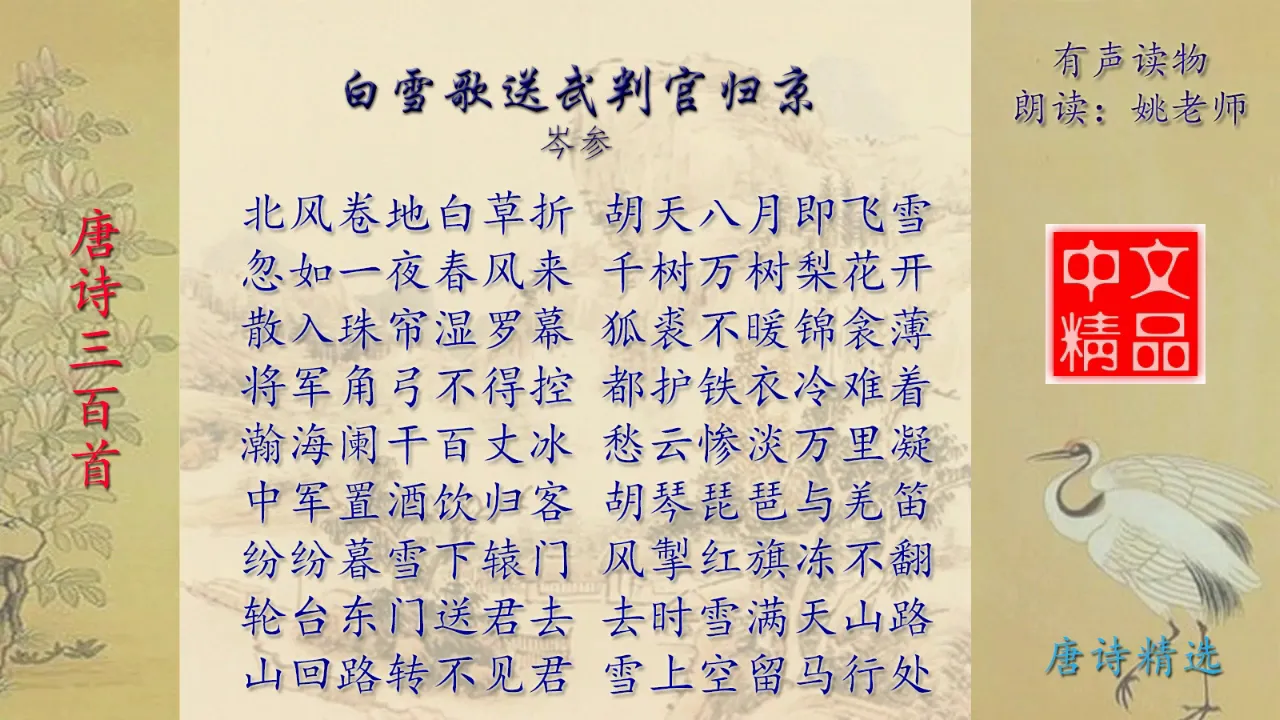 白雪歌送武判官归京
岑参
北风卷地白草折 胡天八月即飞雪
忽如一夜春风来 千树万树梨花开
散入珠帘湿罗幕 狐裘不暖锦衾薄
将军角弓不得控 都护铁衣冷难着
瀚海阑干百丈冰 愁云惨淡万里凝
中军置酒饮归客 胡琴琵琶与羌笛
纷纷暮雪下辕门 风掣红旗冻不翻
轮台东门送君去 去时雪满天山路
山回路转不见君 雪上空留马行处
唐诗三百首
有声读物
朗读：姚老师
中文
精品
唐诗精选